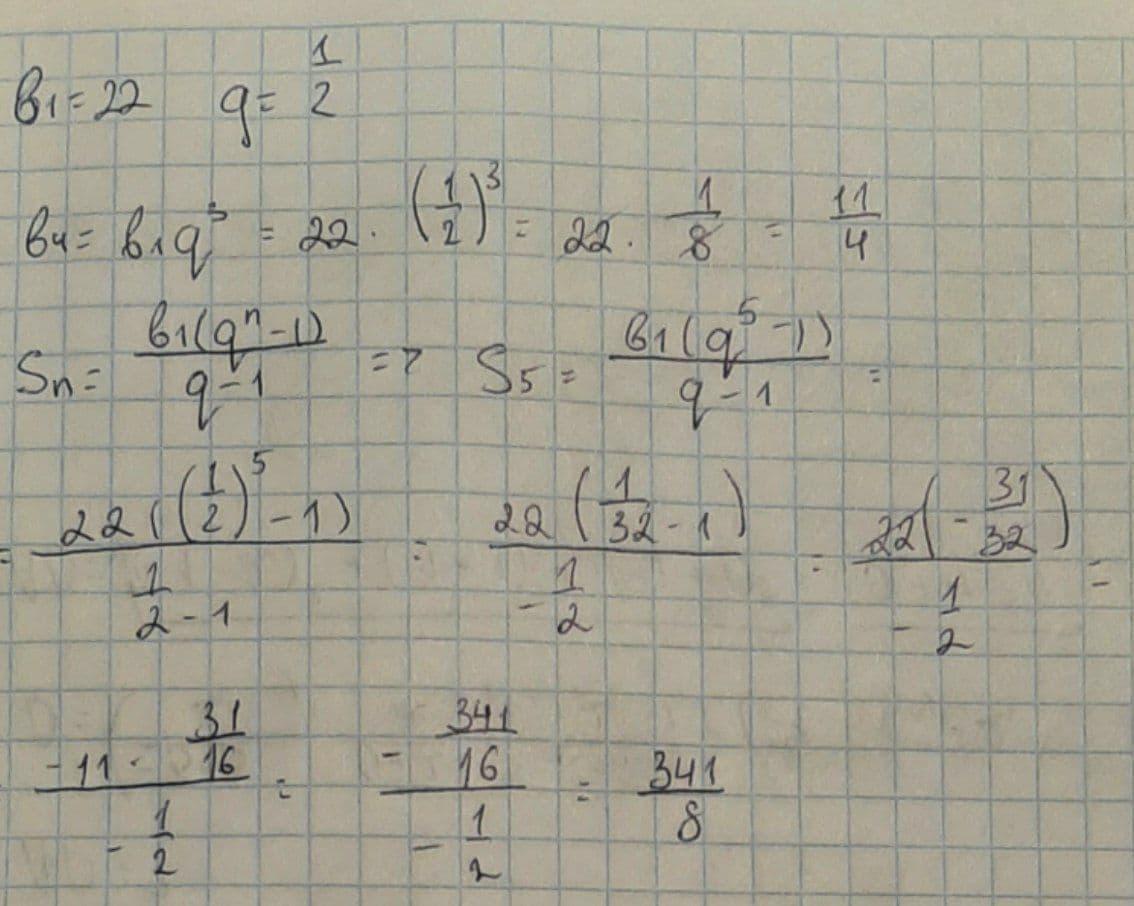 в1 = 22 q = 1/2
в4 = в1q^3 = 22 · (1/2)^3 = 22 · 1/8 = 11/4
Sn = в1(q^n - 1)/(q - 1) => S5 = в1(q^5 - 1)/(q - 1) =
= 22((1/2)^5 - 1)/(1/2 - 1) = 22(1/32 - 1)/(-1/2) = 22(-31/32)/(-1/2) =
(-11 · 31/16)/(-1/2) = (-341/16)/(-1/2) = 341/8